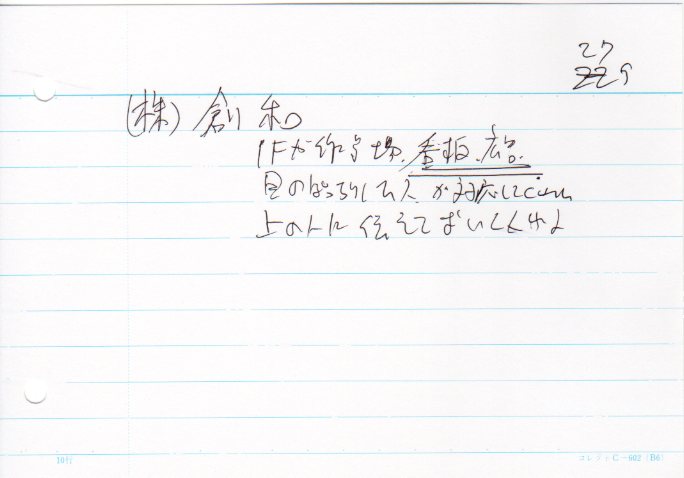 27
229
(株)創和
1Fが作業場、看板、広告。
目のぱっちりした人が対応してくれ
上の人に伝えておいてくれよ
16行
コレクト C-602 (B6)